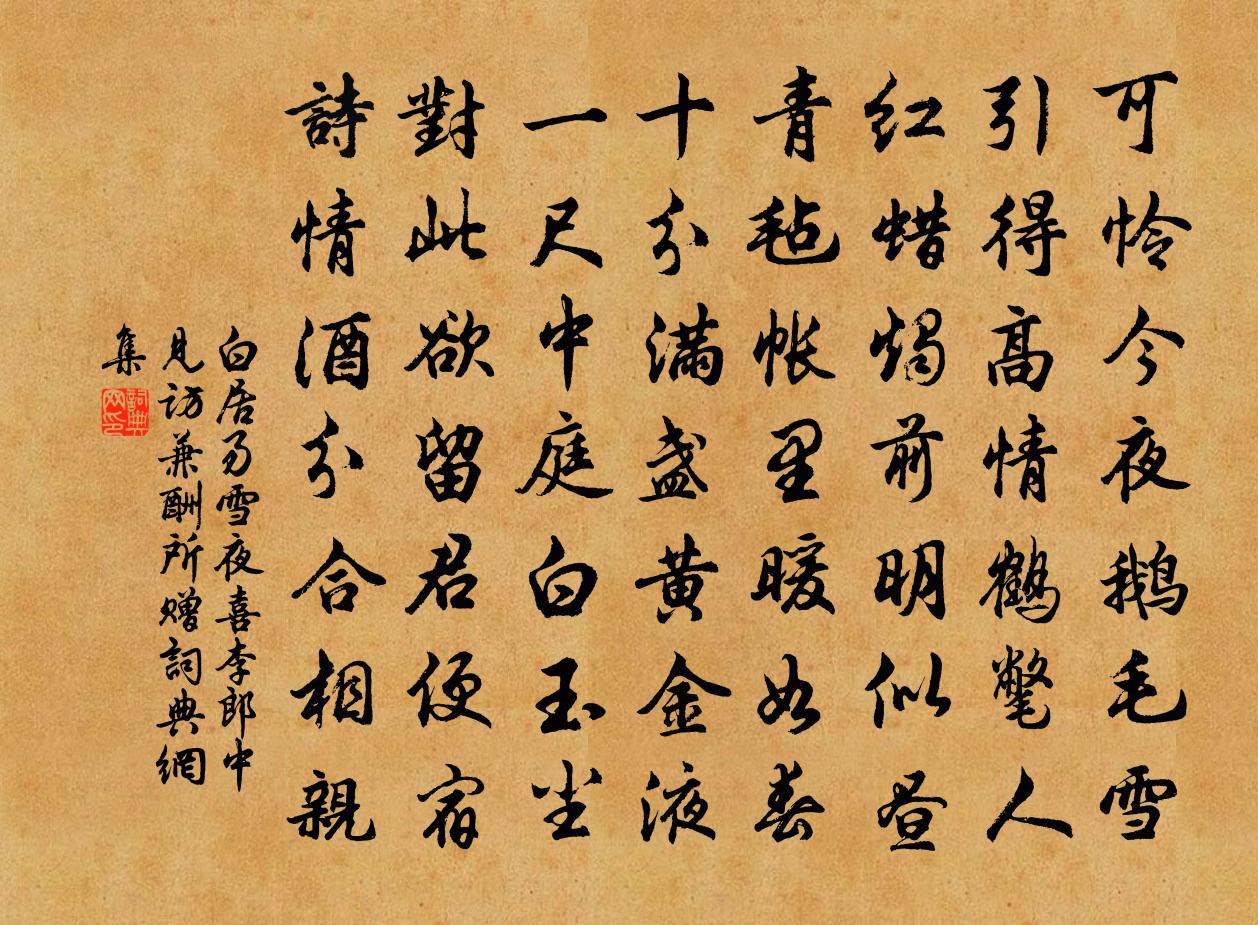 可怜今夜鹅毛雪
引得高情鹤氅人
红蜡烛前明似昼
青毡帐里暖如春
十分满盏黄金液
一尺中庭白玉尘
對此欲留君便宿
詩情酒分合相親
白居易雪夜喜李郎中
見訪兼酬所赠詞典網
集
詞典
网印